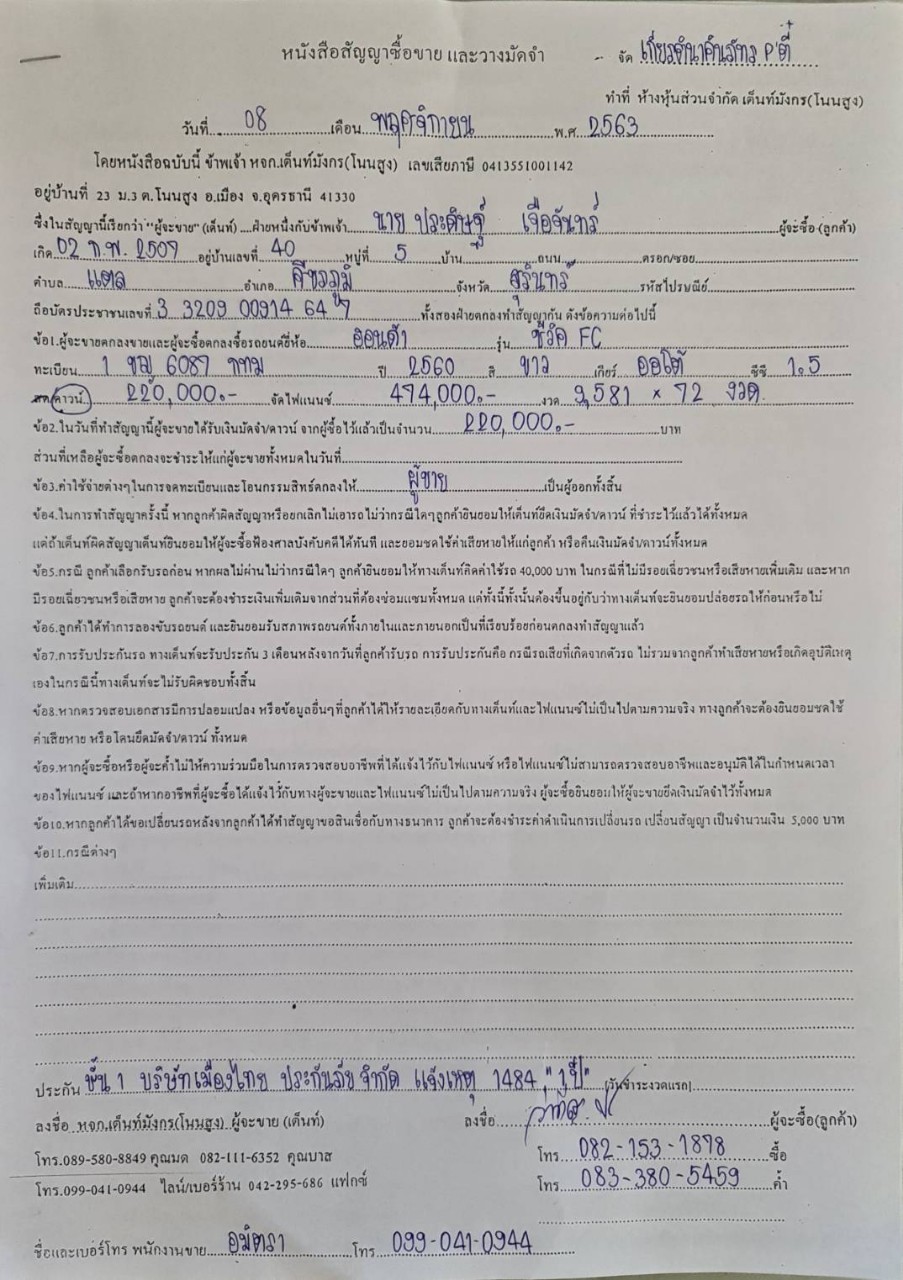 หนังสือสัญญาซื้อขาย และวางมัดจำ - จัด เกียรตินาคินภัทร P'ตี๋
ทำที่ ห้างหุ้นส่วนจำกัด เต็นท์มังกร(โนนสูง)
วันที่ 08 เดือน พฤศจิกายน พ.ศ. 2563
โดยหนังสือฉบับนี้ ข้าพเจ้า หจก.เต็นท์มังกร(โนนสูง) เลขเสียภาษี 0413551001142
อยู่บ้านที่ 23 ม.3 ต.โนนสูง อ.เมือง จ.อุดรธานี 41330
ซึ่งในสัญญานี้เรียกว่า "ผู้จะขาย" (เต็นท์) ....ฝ่ายหนึ่งกับข้าพเจ้า นาย ประดิษฐ์ เจือจันทร์ ผู้จะซื้อ (ลูกค้า)
เกิด 02 ก.พ. 2507 อยู่บ้านเลขที่ 40 หมู่ที่ 5 บ้าน ถนน ตรอก/ซอย
ตำบล แตล อำเภอ ศีขรภูมิ จังหวัด สุรินทร์ รหัสไปรษณีย์
ถือบัตรประชาชนเลขที่ 3 3209 00914 64 7 ทั้งสองฝ่ายตกลงทำสัญญากัน ดังข้อความต่อไปนี้
ข้อ1.ผู้จะขายตกลงขายและผู้จะซื้อตกลงซื้อรถยนต์ยี่ห้อ ฮอนด้า รุ่น ซีวิค FC
ทะเบียน 1 ขญ 6087 กทม ปี 2560 สี ขาว เกียร์ ออโต้ ซีซี 1.5
สด/ดาวน์ 220,000.- จัดไฟแนนซ์ 474,000.- งวด 9,581 × 72 งวด
ข้อ2.ในวันที่ทำสัญญานี้ผู้จะขายได้รับเงินมัดจำ/ดาวน์ จากผู้ซื้อไว้แล้วเป็นจำนวน 220,000.- บาท
ส่วนที่เหลือผู้จะซื้อตกลงจะชำระให้แก่ผู้จะขายทั้งหมดในวันที่
ข้อ3.ค่าใช้จ่ายต่างๆในการจดทะเบียนและโอนกรรมสิทธ์ตกลงให้ ผู้ขาย เป็นผู้ออกทั้งสิ้น
ข้อ4.ในการทำสัญญาครั้งนี้ หากลูกค้าผิดสัญญาหรือยกเลิกไม่เอารถไม่ว่ากรณีใดๆลูกค้ายินยอมให้เต็นท์ยึดเงินมัดจำ/ดาวน์ ที่ชำระไว้แล้วได้ทั้งหมด
แต่ถ้าเต็นท์ผิดสัญญาเต็นท์ยินยอมให้ผู้จะซื้อฟ้องศาลบังคับคดีได้ทันที และยอมชดใช้ค่าเสียหายให้แก่ลูกค้า หรือคืนเงินมัดจำ/ดาวน์ทั้งหมด
ข้อ5.กรณี ลูกค้าเลือกรับรถก่อน หากผลไม่ผ่านไม่ว่ากรณีใดๆ ลูกค้ายินยอมให้ทางเต็นท์คิดค่าใช้รถ 40,000 บาท ในกรณีที่ไม่มีรอยเฉี่ยวชนหรือเสียหายเพิ่มเติม และหาก
มีรอยเฉี่ยวชนหรือเสียหาย ลูกค้าจะต้องชำระเงินเพิ่มเติมจากส่วนที่ต้องซ่อมแซมทั้งหมด แต่ทั้งนี้ทั้งนั้นต้องขึ้นอยู่กับว่าทางเต็นท์จะยินยอมปล่อยรถให้ก่อนหรือไม่
ข้อ6.ลูกค้าได้ทำการลองขับรถยนต์ และยินยอมรับสภาพรถยนต์ทั้งภายในและภายนอกเป็นที่เรียบร้อยก่อนตกลงทำสัญญาแล้ว
ข้อ7.การรับประกันรถ ทางเต็นท์จะรับประกัน 3 เดือนหลังจากวันที่ลูกค้ารับรถ การรับประกันคือ กรณีรถเสียที่เกิดจากตัวรถ ไม่รวมจากลูกค้าทำเสียหายหรือเกิดอุบัติเหตุ
เองในกรณีนี้ทางเต็นท์จะไม่รับผิดชอบทั้งสิ้น
ข้อ8.หากตรวจสอบเอกสารมีการปลอมแปลง หรือข้อมูลอื่นๆที่ลูกค้าได้ให้รายละเอียดกับทางเต็นท์และไฟแนนซ์ไม่เป็นไปตามความจริง ทางลูกค้าจะต้องยินยอมชดใช้
ค่าเสียหาย หรือโดนยึดมัดจำ/ดาวน์ ทั้งหมด
ข้อ9.หากผู้จะซื้อหรือผู้จะค้ำไม่ให้ความร่วมมือในการตรวจสอบอาชีพที่ได้แจ้งไว้กับไฟแนนซ์ หรือไฟแนนซ์ไม่สามารถตรวจสอบอาชีพและอนุมัติได้ในกำหนดเวลา
ของไฟแนนซ์ และถ้าหากอาชีพที่ผู้จะซื้อได้แจ้งไว้กับทางผู้จะขายและไฟแนนซ์ไม่เป็นไปตามความจริง ผู้จะซื้อยินยอมให้ผู้จะขายยึดเงินมัดจำไว้ทั้งหมด
ข้อ10.หากลูกค้าได้ขอเปลี่ยนรถหลังจากลูกค้าได้ทำสัญญาขอสินเชื่อกับทางธนาคาร ลูกค้าจะต้องชำระค่าดำเนินการเปลี่ยนรถ เปลี่ยนสัญญา เป็นจำนวนเงิน 5,000 บาท
ข้อ11.กรณีต่างๆ
เพิ่มเติม
ประกัน ชั้น 1 บริษัทเมืองไทย ประกันภัย จำกัด แจ้งเหตุ 1484 "1 ปี" (วันชำระงวดแรก)
ลงชื่อ หจก.เต็นท์มังกร(โนนสูง) ผู้จะขาย (เต็นท์) ลงชื่อ ผู้จะซื้อ(ลูกค้า)
โทร.089-580-8849 คุณมด 082-111-6352 คุณบาส โทร 082-153-1878 ซื้อ
โทร.099-041-0944 ไลน์/เบอร์ร้าน 042-295-686 แฟกซ์ โทร 083-380-5459 ค้ำ
ชื่อและเบอร์โทร พนักงานขาย อมิตรา โทร 099-041-0944